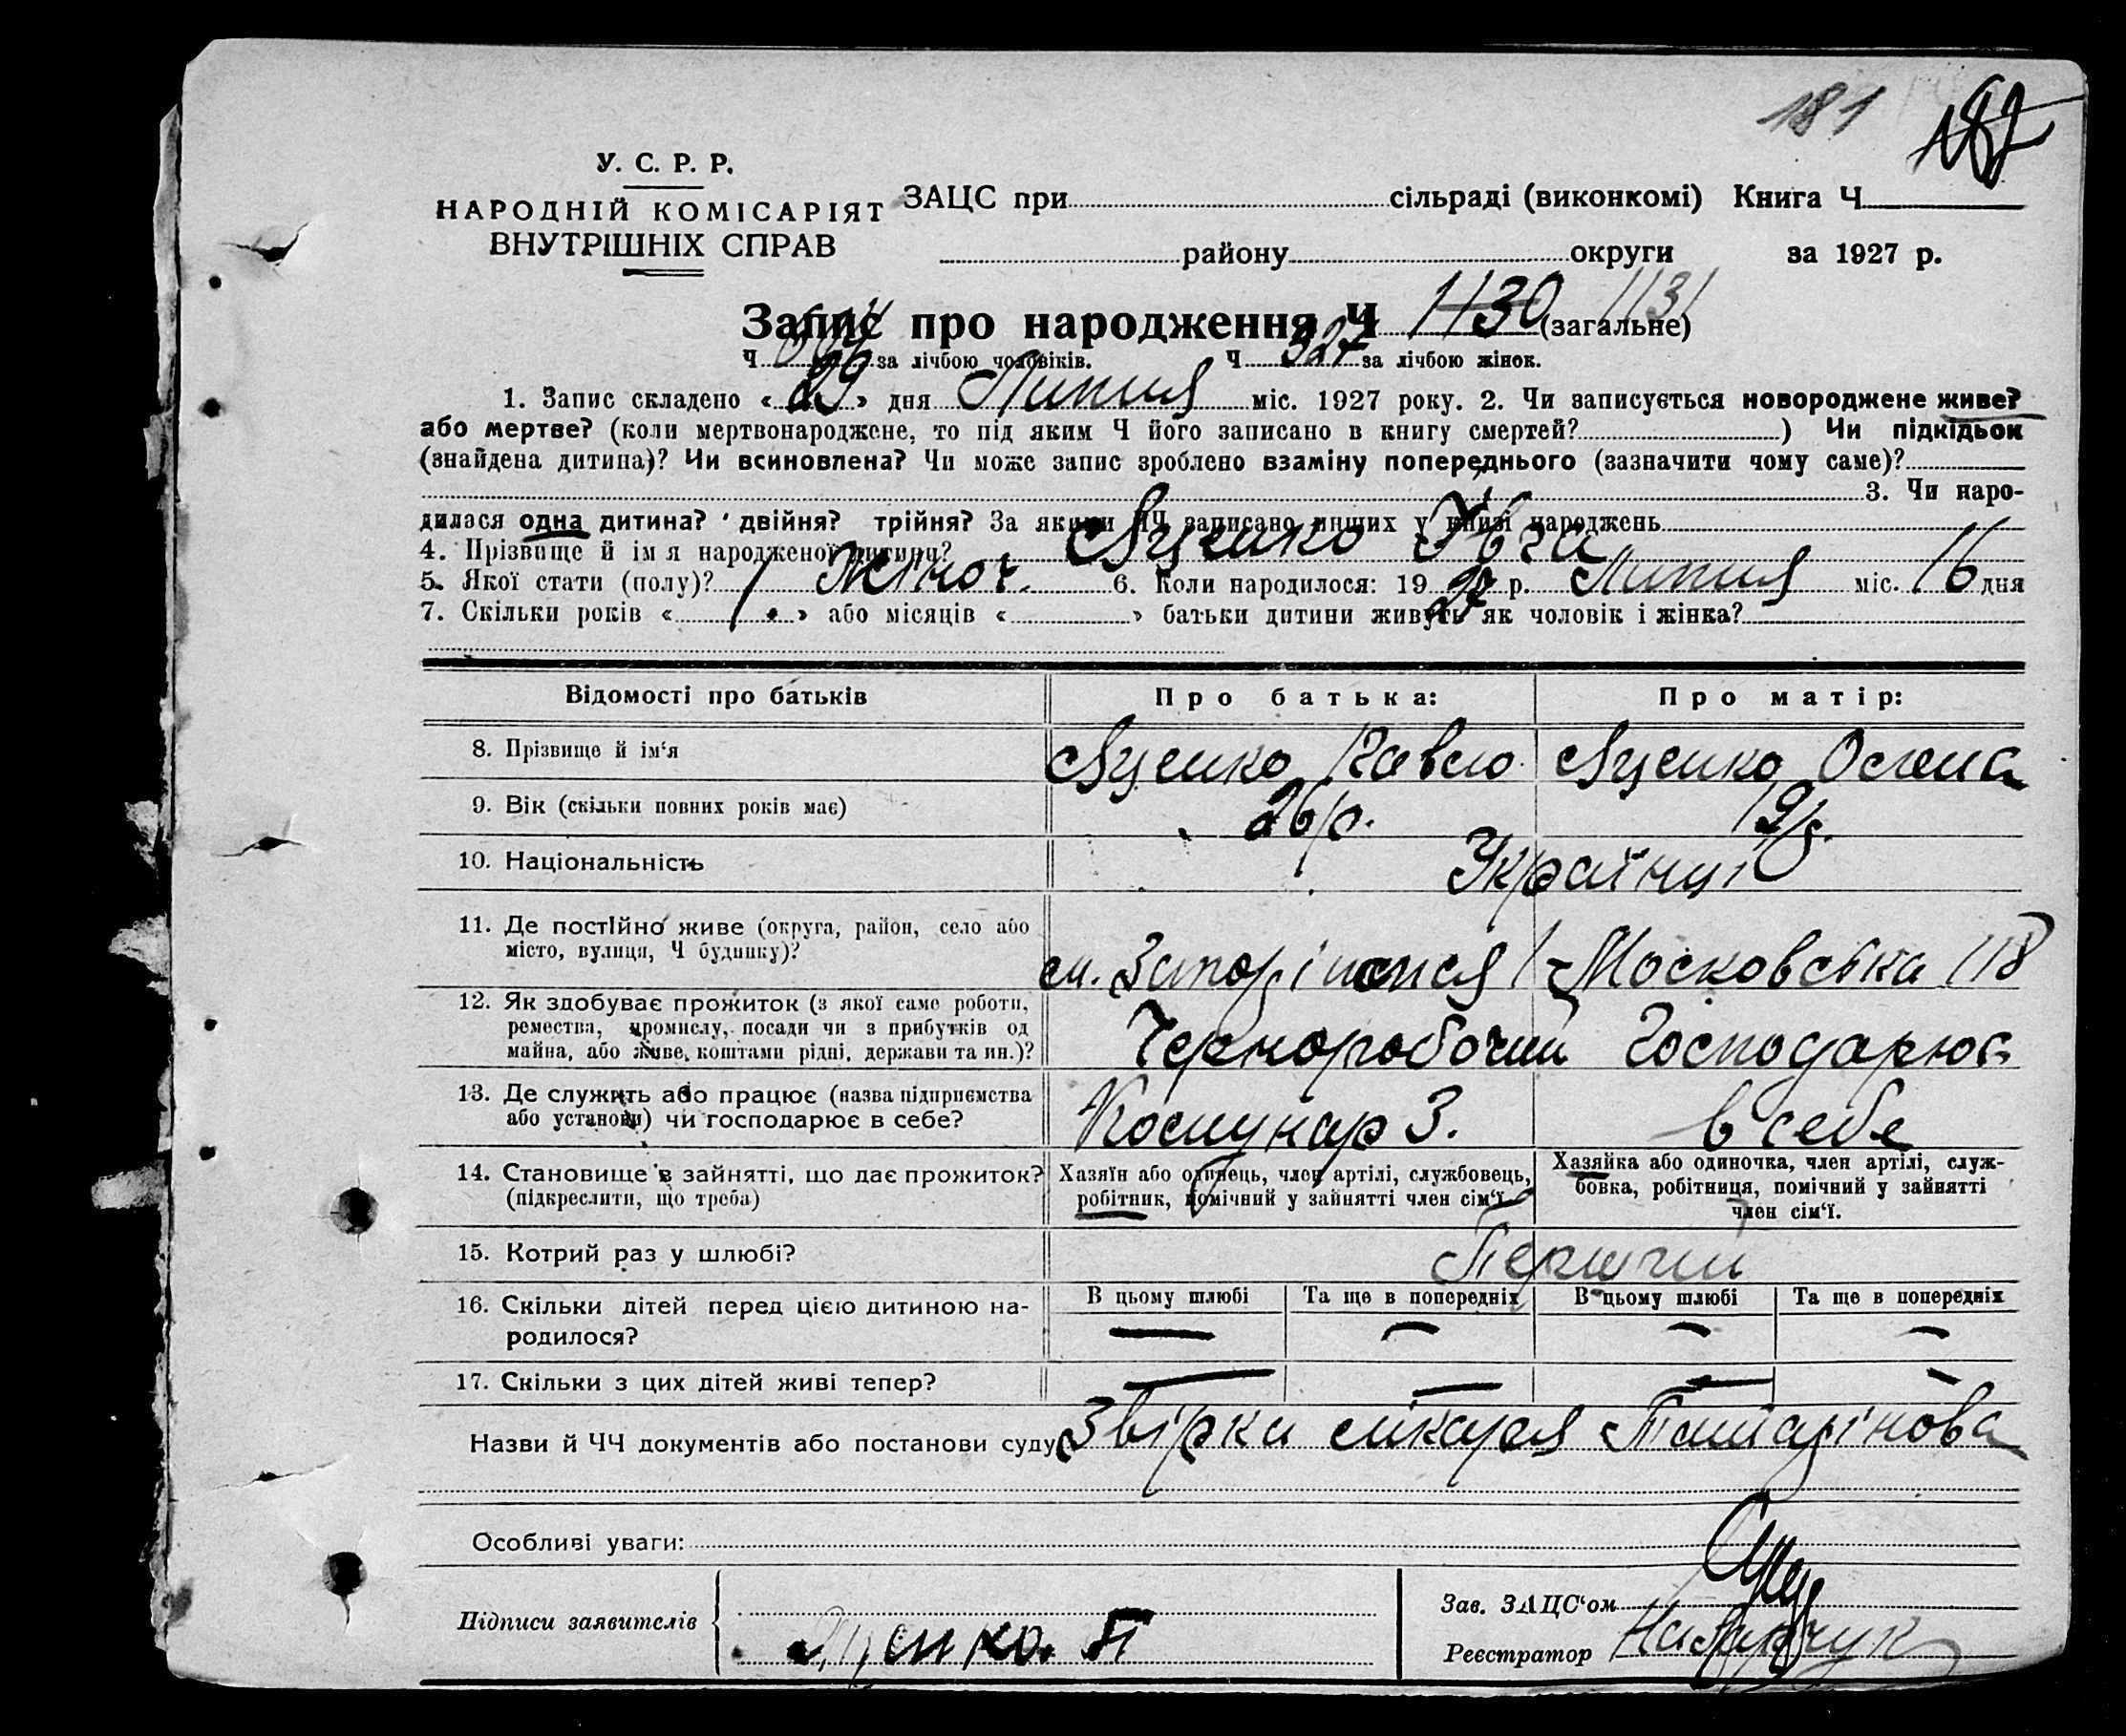 181 187
У. С. Р. Р.
НАРОДНІЙ КОМІСАРІЯТ
ВНУТРІШНІХ СПРАВ
ЗАЦС при сільраді (виконкомі) Книга Ч
району округи за 1927 р.
Запис про народження Ч 1130 1131 (загальне)
Ч за лічбою чоловіків. Ч 527 за лічбою жінок.
1. Запис складено « 29 » дня Липня міс. 1927 року. 2. Чи записується новороджене живе?
або мертве? (коли мертвонароджене, то під яким Ч його записано в книгу смертей? ) Чи підкідьок
(знайдена дитина)? Чи всиновлена? Чи може запис зроблено взаміну попереднього (зазначити чому саме)?
3. Чи наро-
дилася одна дитина? двійня? трійня? За якими ЧЧ записано инших у книзі народжень
4. Прізвище й ім я народженої дитини? Луценко Івга
5. Якої стати (полу)? Жіноч. 6. Коли народилося: 19 27 р. Липня міс. 16 дня
7. Скільки років « 1 » або місяців « » батьки дитини живуть як чоловік і жінка?
Відомості про батьків Про батька: Про матір:
8. Прізвище й ім‘я Луценко Павло Луценко Олена
9. Вік (скільки повних років має) 26 р. 19 р.
10. Національність Українці
11. Де постійно живе (округа, район, село або
місто, вулиця, Ч будинку)? м. Запоріжжя Московська 118
12. Як здобуває прожиток (з якої саме роботи,
ремества, промислу, посади чи з прибутків од
майна, або живе коштами рідні, держави та ин.)? Чорноробочий Господарює
13. Де служить або працює (назва підприємства
або установи) чи господарює в себе? Комунар З. в себе
14. Становище в зайнятті, що дає прожиток?
(підкреслити, що треба)
Хазяїн або одинець, член артілі, службовець,
робітник, помічний у зайнятті член сім‘ї.
Хазяйка або одиночка, член артілі, служ-
бовка, робітниця, помічний у зайнятті
член сім‘ї.
15. Котрий раз у шлюбі? Перший
16. Скільки дітей перед цією дитиною на-
родилося?
В цьому шлюбі Та ще в попередніх В цьому шлюбі Та ще в попередніх
— — — —
17. Скільки з цих дітей живі тепер? — — — —
Назви й ЧЧ документів або постанови суду Звірка лікаря
Особливі уваги:
Підписи заявителів Луценко П
Зав. ЗАЦС‘ом
Реєстратор Назарчук